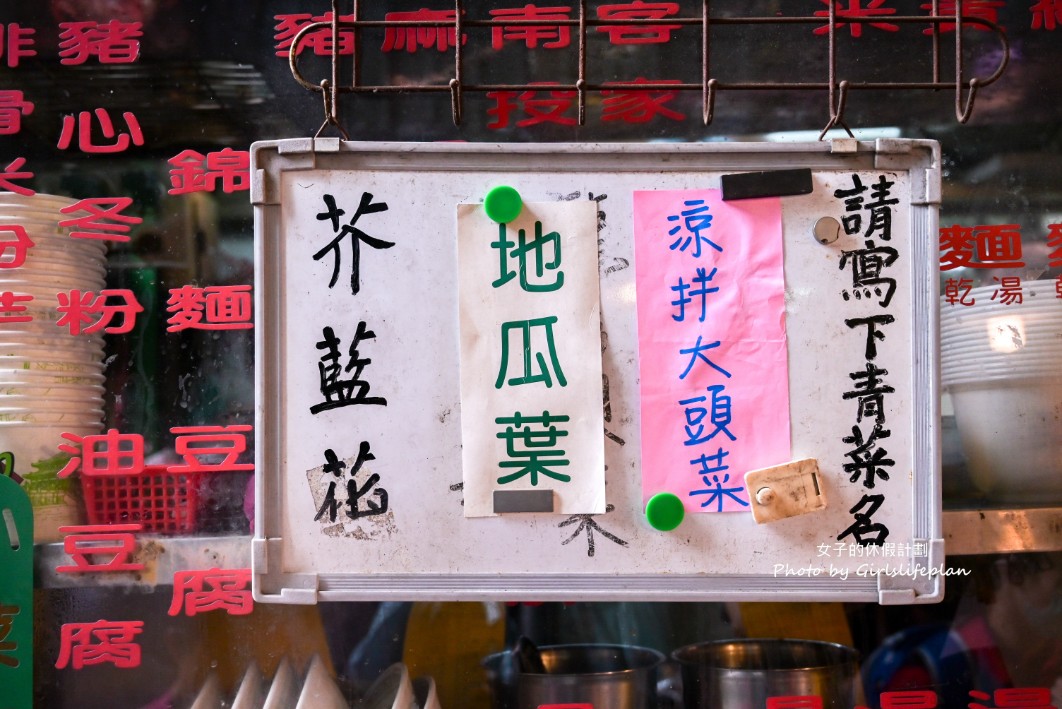 請寫下青菜名
涼拌大頭菜
地瓜葉
芥藍花
豬心
冬粉
油豆腐
錦麵
豆腐
豬
豬
麻
南投
客家
麵
乾
湯
女子的休假計劃
Photo by Girlslifeplan